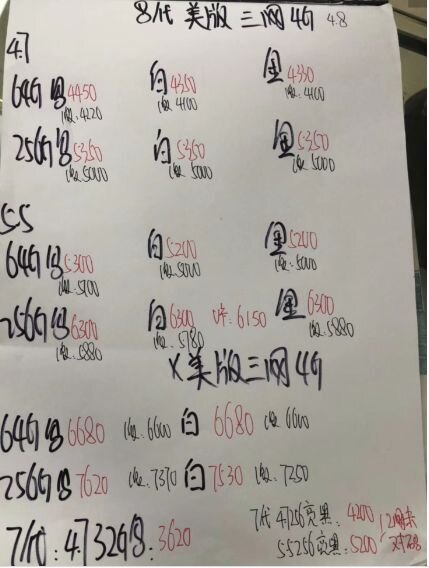 8代 美版三网4G 4.8
4.7
64G 4450 白 4350 金 4330
收:4220 收:4100 收:4100
256G 5350 白 5350 金 5350
收:5000 收:5000 收:5000
5.5
64G 5300 白 5200 金 5200
收:5100 收:5000 收:5000
256G 6300 白 6300 6150 金 6300
收:5880 收:5780 收:5880
X美版三网4G
64G 6680 收:6600 白 6680 收:6600
256G 7620 收:7370 白 7530 收:7350
7代:4.7 32G :3620
7代 4.7 256亮黑:4200
5.5 256亮黑:5200